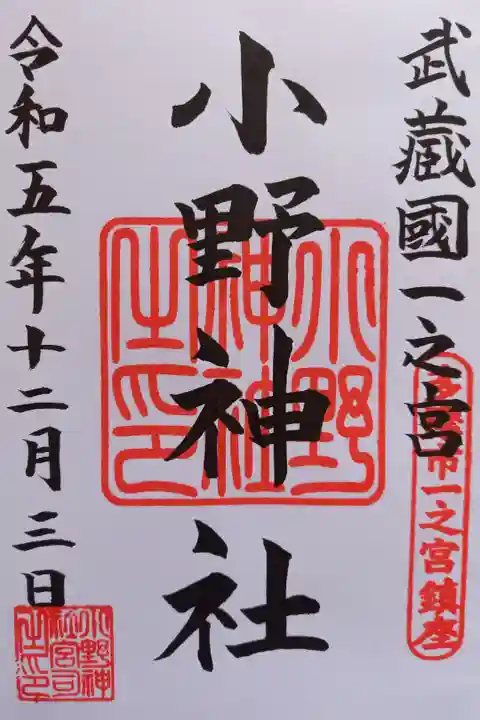 武藏國一之宮
多摩市一之宮鎮座
小野神社
小野
神社
之印
令和五年十二月三日
小野神
社宮司
之印